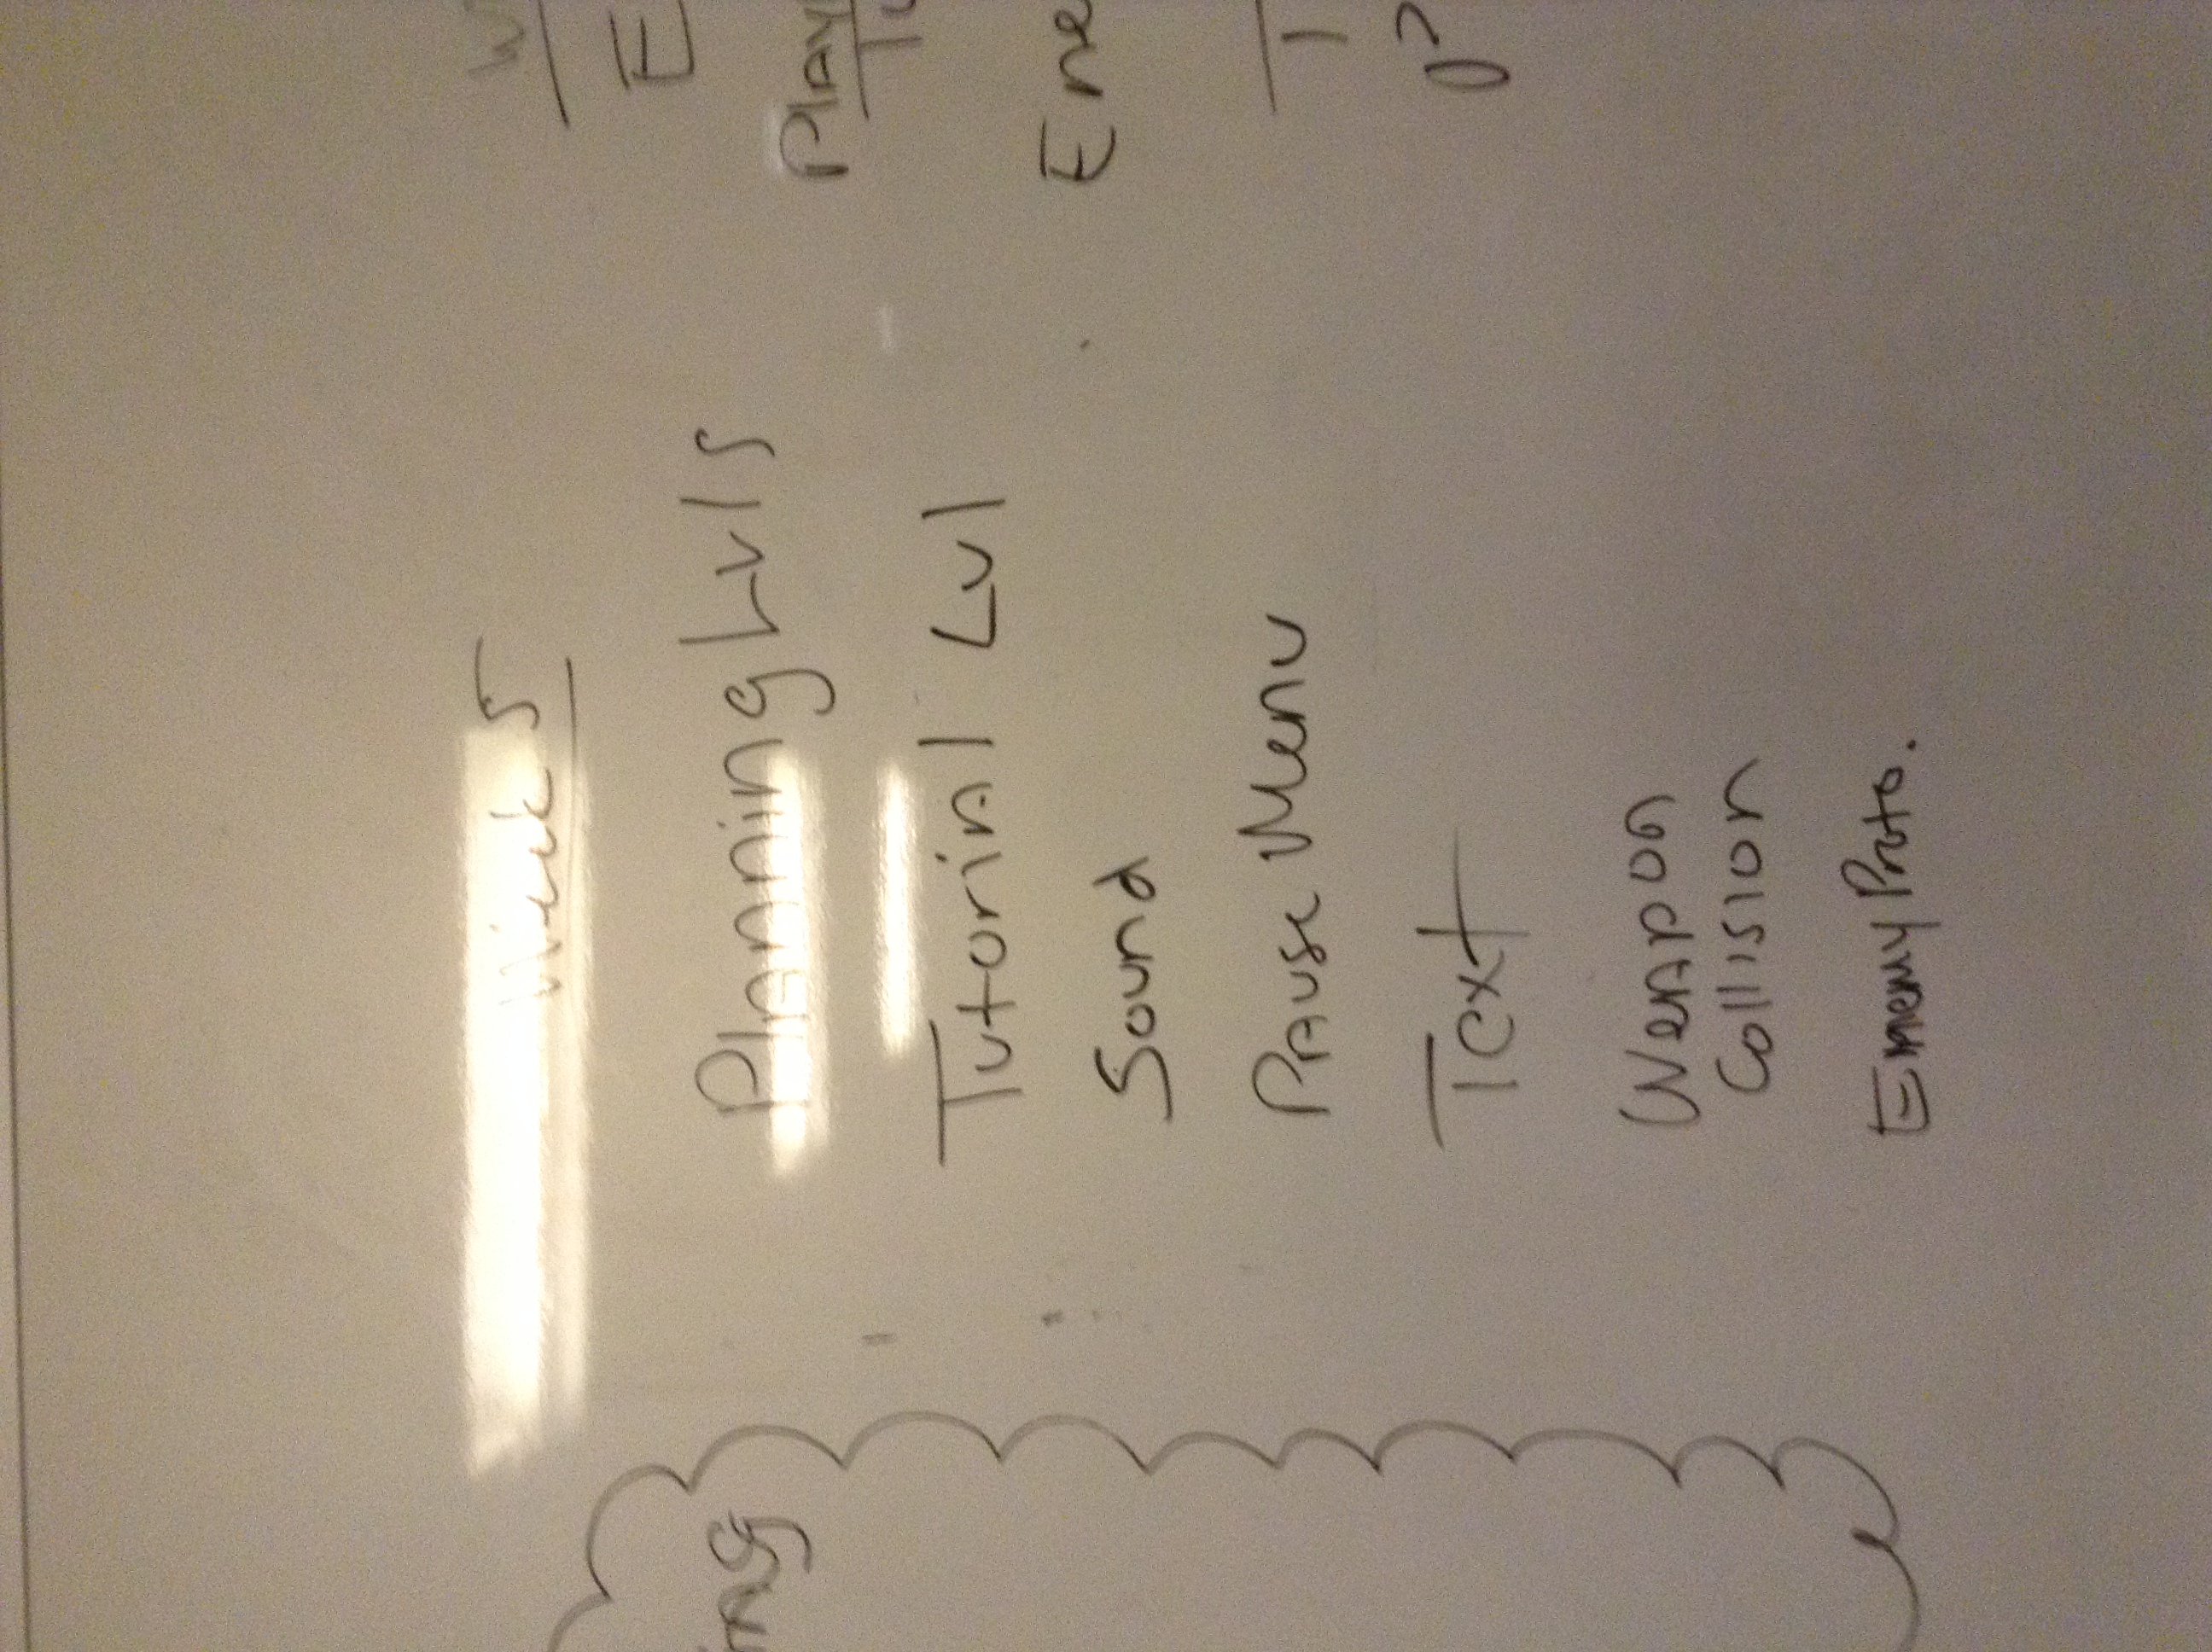 Week 5
Planning Lvls
Tutorial Lvl
Sound
Pause Menu
Text
Weapon
Collision
Enemy Proto.